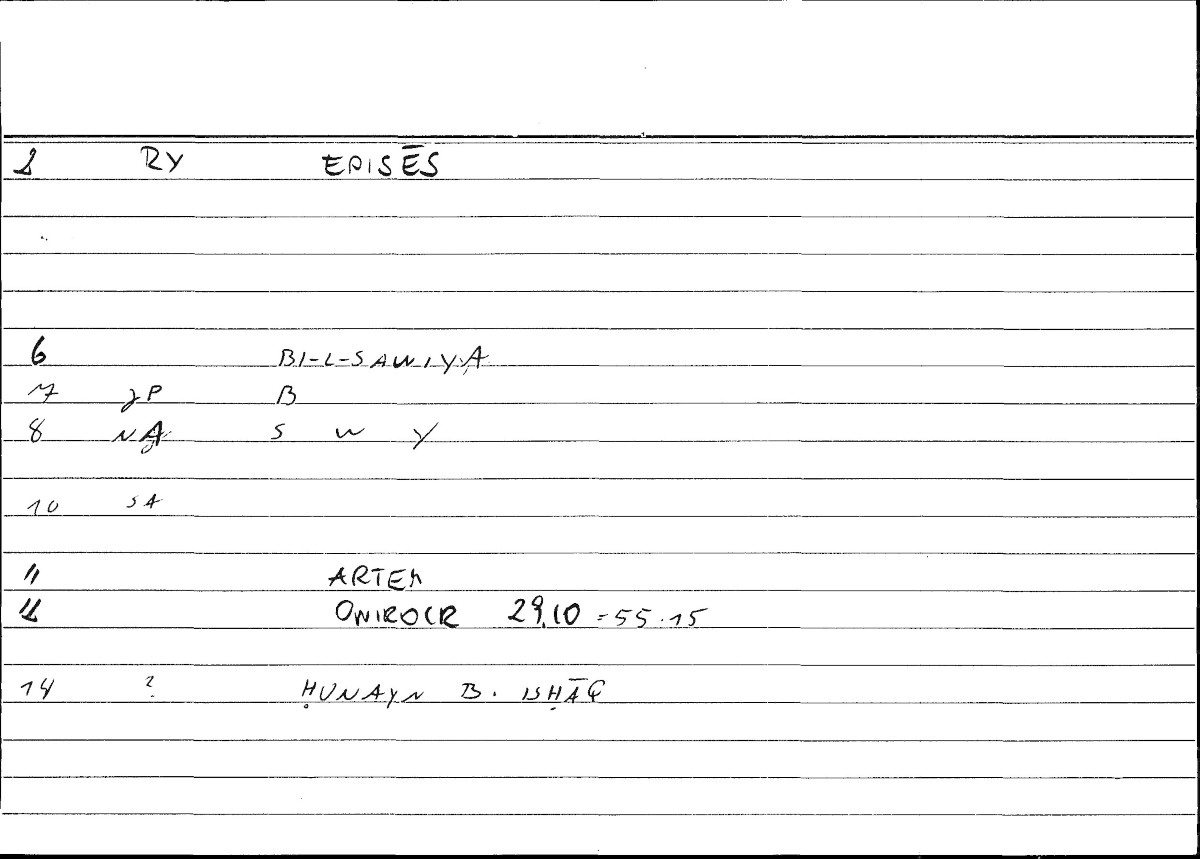 1 RY EPISĒS
6 BI-L-SAWIYA
7 JP B
8 NA S W Y
10 SA
11 ARTEM
12 ONIROCR 29.10 = 55.15
14 ? ḤUNAYN B. ISḤĀQ